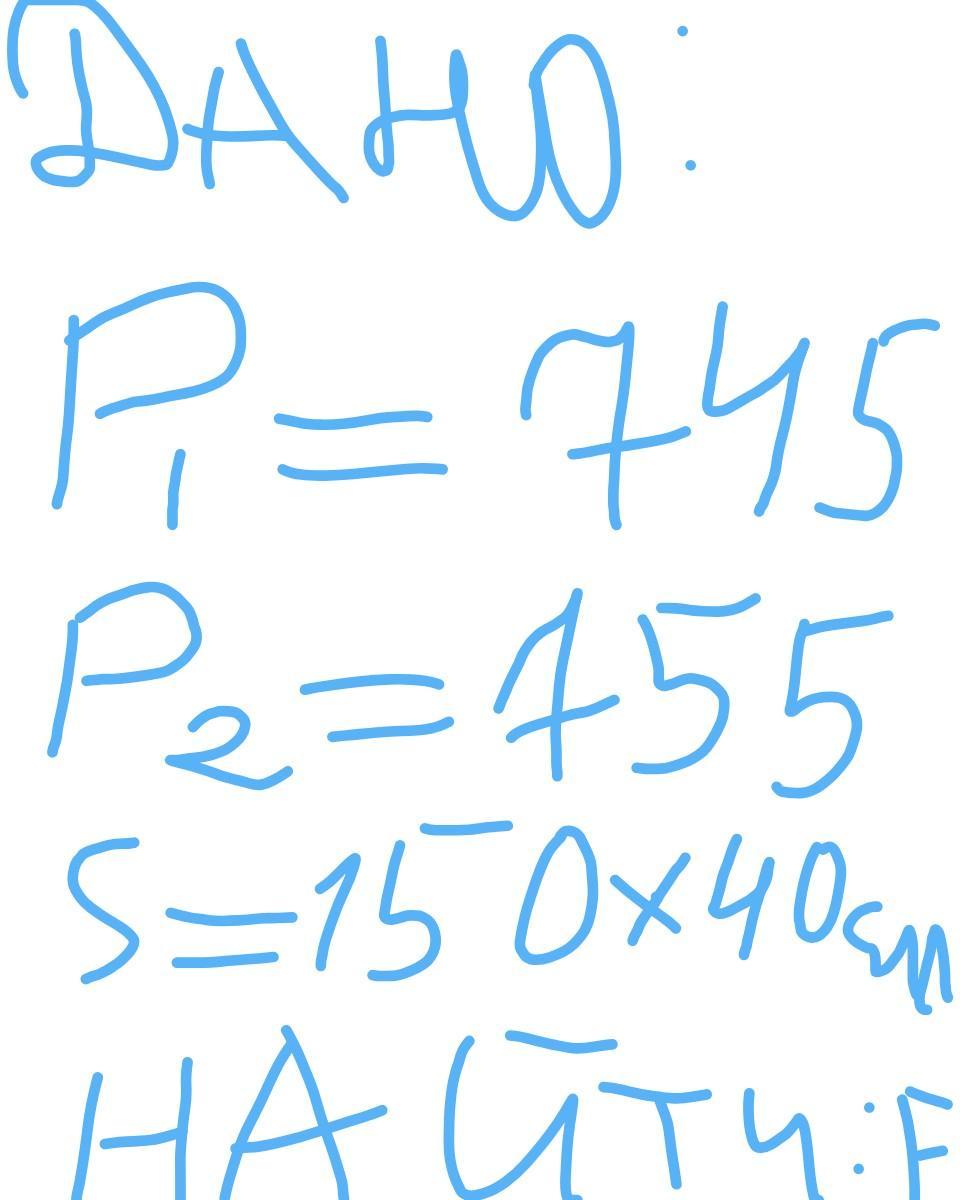 ДАНО:
P1 = 745
P2 = 755
S = 150x40см
НАЙТИ: F